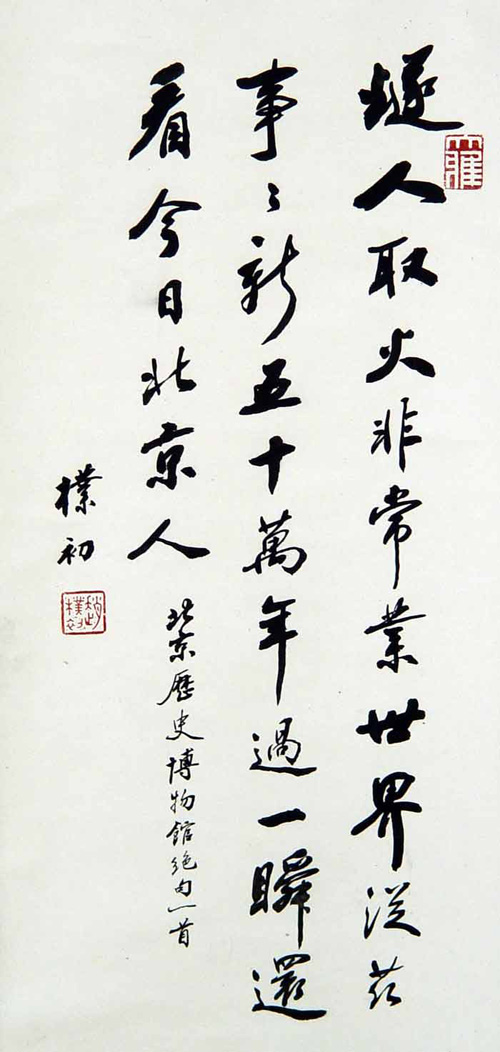 燧人取火非常業世界從茲
事〻新五十萬年過一瞬還
看今日北京人
北京歷史博物館絶句一首
樸初
趙樸初